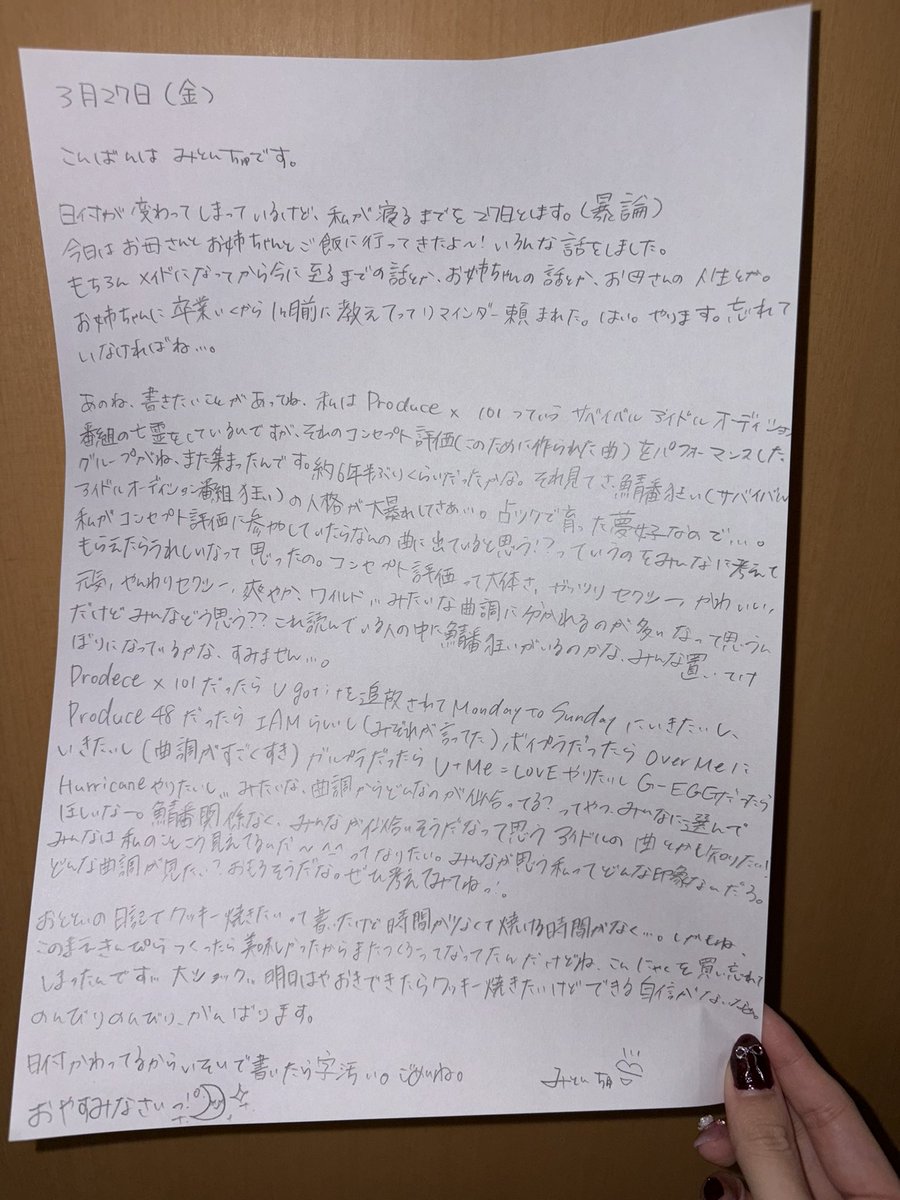 3月27日(金)
こんばんは みとんちゅです。
日付が変わってしまっているけど、私が寝るまでを27日とします。(暴論)
今日はお母さんとお姉ちゃんとご飯に行ってきたよ〜!いろんな話をしました。
もちろんメイドになってから今に至るまでの話とか、お姉ちゃんの話とか、お母さんの人生とか。
お姉ちゃんに卒業いくから1ヶ月前に教えてってリマインダー頼まれた。はい。やります。忘れて
いなければね…。
あのね、書きたいことがあってね、私はProduce x 101っていうサバイバルアイドルオーディション
番組の亡霊をしているんですが、そのコンセプト評価(このために作られた曲)をパフォーマンスした
グループがね、また集まったんです。約6年半ぶりくらいだったかな。それ見てさ、鯖番狂い(サバイバル
アイドルオーディション番組狂い)の人格が大暴れしてさぁ…。占ツクで育った夢女子なので…。
私がコンセプト評価に参加していたらなんの曲に出ていると思う!?っていうのをみんなに考えて
もらえたらうれしいなって思ったの。コンセプト評価って大体さ、ガッツリセクシー、かわいい、
元気、やんわりセクシー、爽やか、ワイルド…みたいな曲調に分かれるのが多いなって思うん
だけどみんなどう思う??これ読んでいる人の中に鯖番狂いがいるのかな、みんな置いてけ
ぼりになっているかな、すみません…。
Prodece x 101だったらU got itを追放されてMonday to Sundayにいきたいし、
Produce 48だったらIAMらしいし(みぞれが言ってた)ボイプラだったらOver Meに
いきたいし(曲調がすごくすき)ガルプラだったらU+Me=LOVEやりたいしG-EGGだったら
Hurricaneやりたいし…みたいな、曲調からどんなのが似合ってる?ってやつ、みんなに選んで
ほしいな〜。鯖番関係なく、みんなが似合いそうだなって思うアイドルの曲とかも知りたい!
みんなは私のことこう見えてるんだ〜^^ってなりたい。みんなが思う私ってどんな印象なんだろ。
どんな曲調が見たい?おもろそうだな。ぜひ考えてみてねっ!。
おとといの日記でクッキー焼きたいって書いたけど時間が少なくて焼ける時間がなく…。しかもね、
このまえきんぴらつくったら美味しかったからまたつくろってなってたんだけどね、こんにゃくを買い忘れて
しまったんです…大ショック…明日はやおきできたらクッキー焼きたいけどできる自信がない
のんびりのんびり、がんばります。
日付かわってるからいそいで書いたら字汚い。ごめんね。
みとんちゅ
おやすみなさいっ!